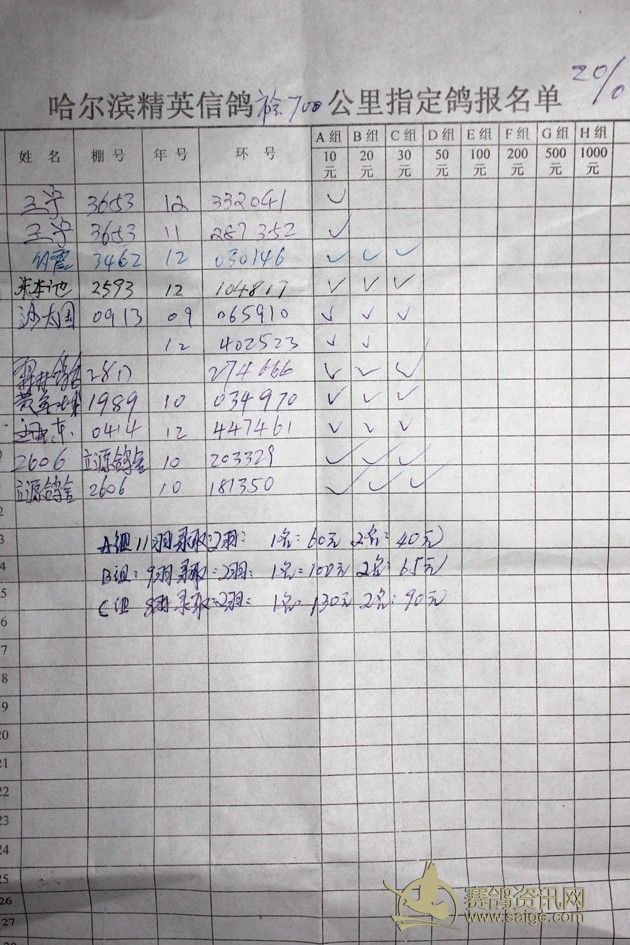 20%
哈尔滨精英信鸽 700公里指定鸽报名单
姓 名 棚 号 年 号 环 号 A 组 B 组 C 组 D 组 E 组 F 组 G 组 H 组
10元 20元 30元 50元 100元 200元 500元 1000元
王宇 3653 12 332041 ✓
王宇 3653 11 287352 ✓
3462 12 030146 ✓ ✓ ✓
2593 12 104817 ✓ ✓ ✓
0913 09 065910 ✓ ✓ ✓
12 402523 ✓ ✓
2817 274666 ✓ ✓ ✓
1989 10 034970 ✓ ✓ ✓
0414 12 447461 ✓ ✓ ✓
2606 立源鸽舍 10 203329 ✓ ✓ ✓
立源鸽舍 2606 10 181350 ✓ ✓ ✓
2
3 A组 11羽录取=2羽: 1名: 60元 2名: 40元
4 B组: 9羽录取=2羽: 1名=100元 2名: 65元
5 C组 8羽录取=2羽: 1名: 130元 2名: 90元
6
7
8
9
20
21
22
23
24
25
26
27
赛鸽资讯网
www.saige.com